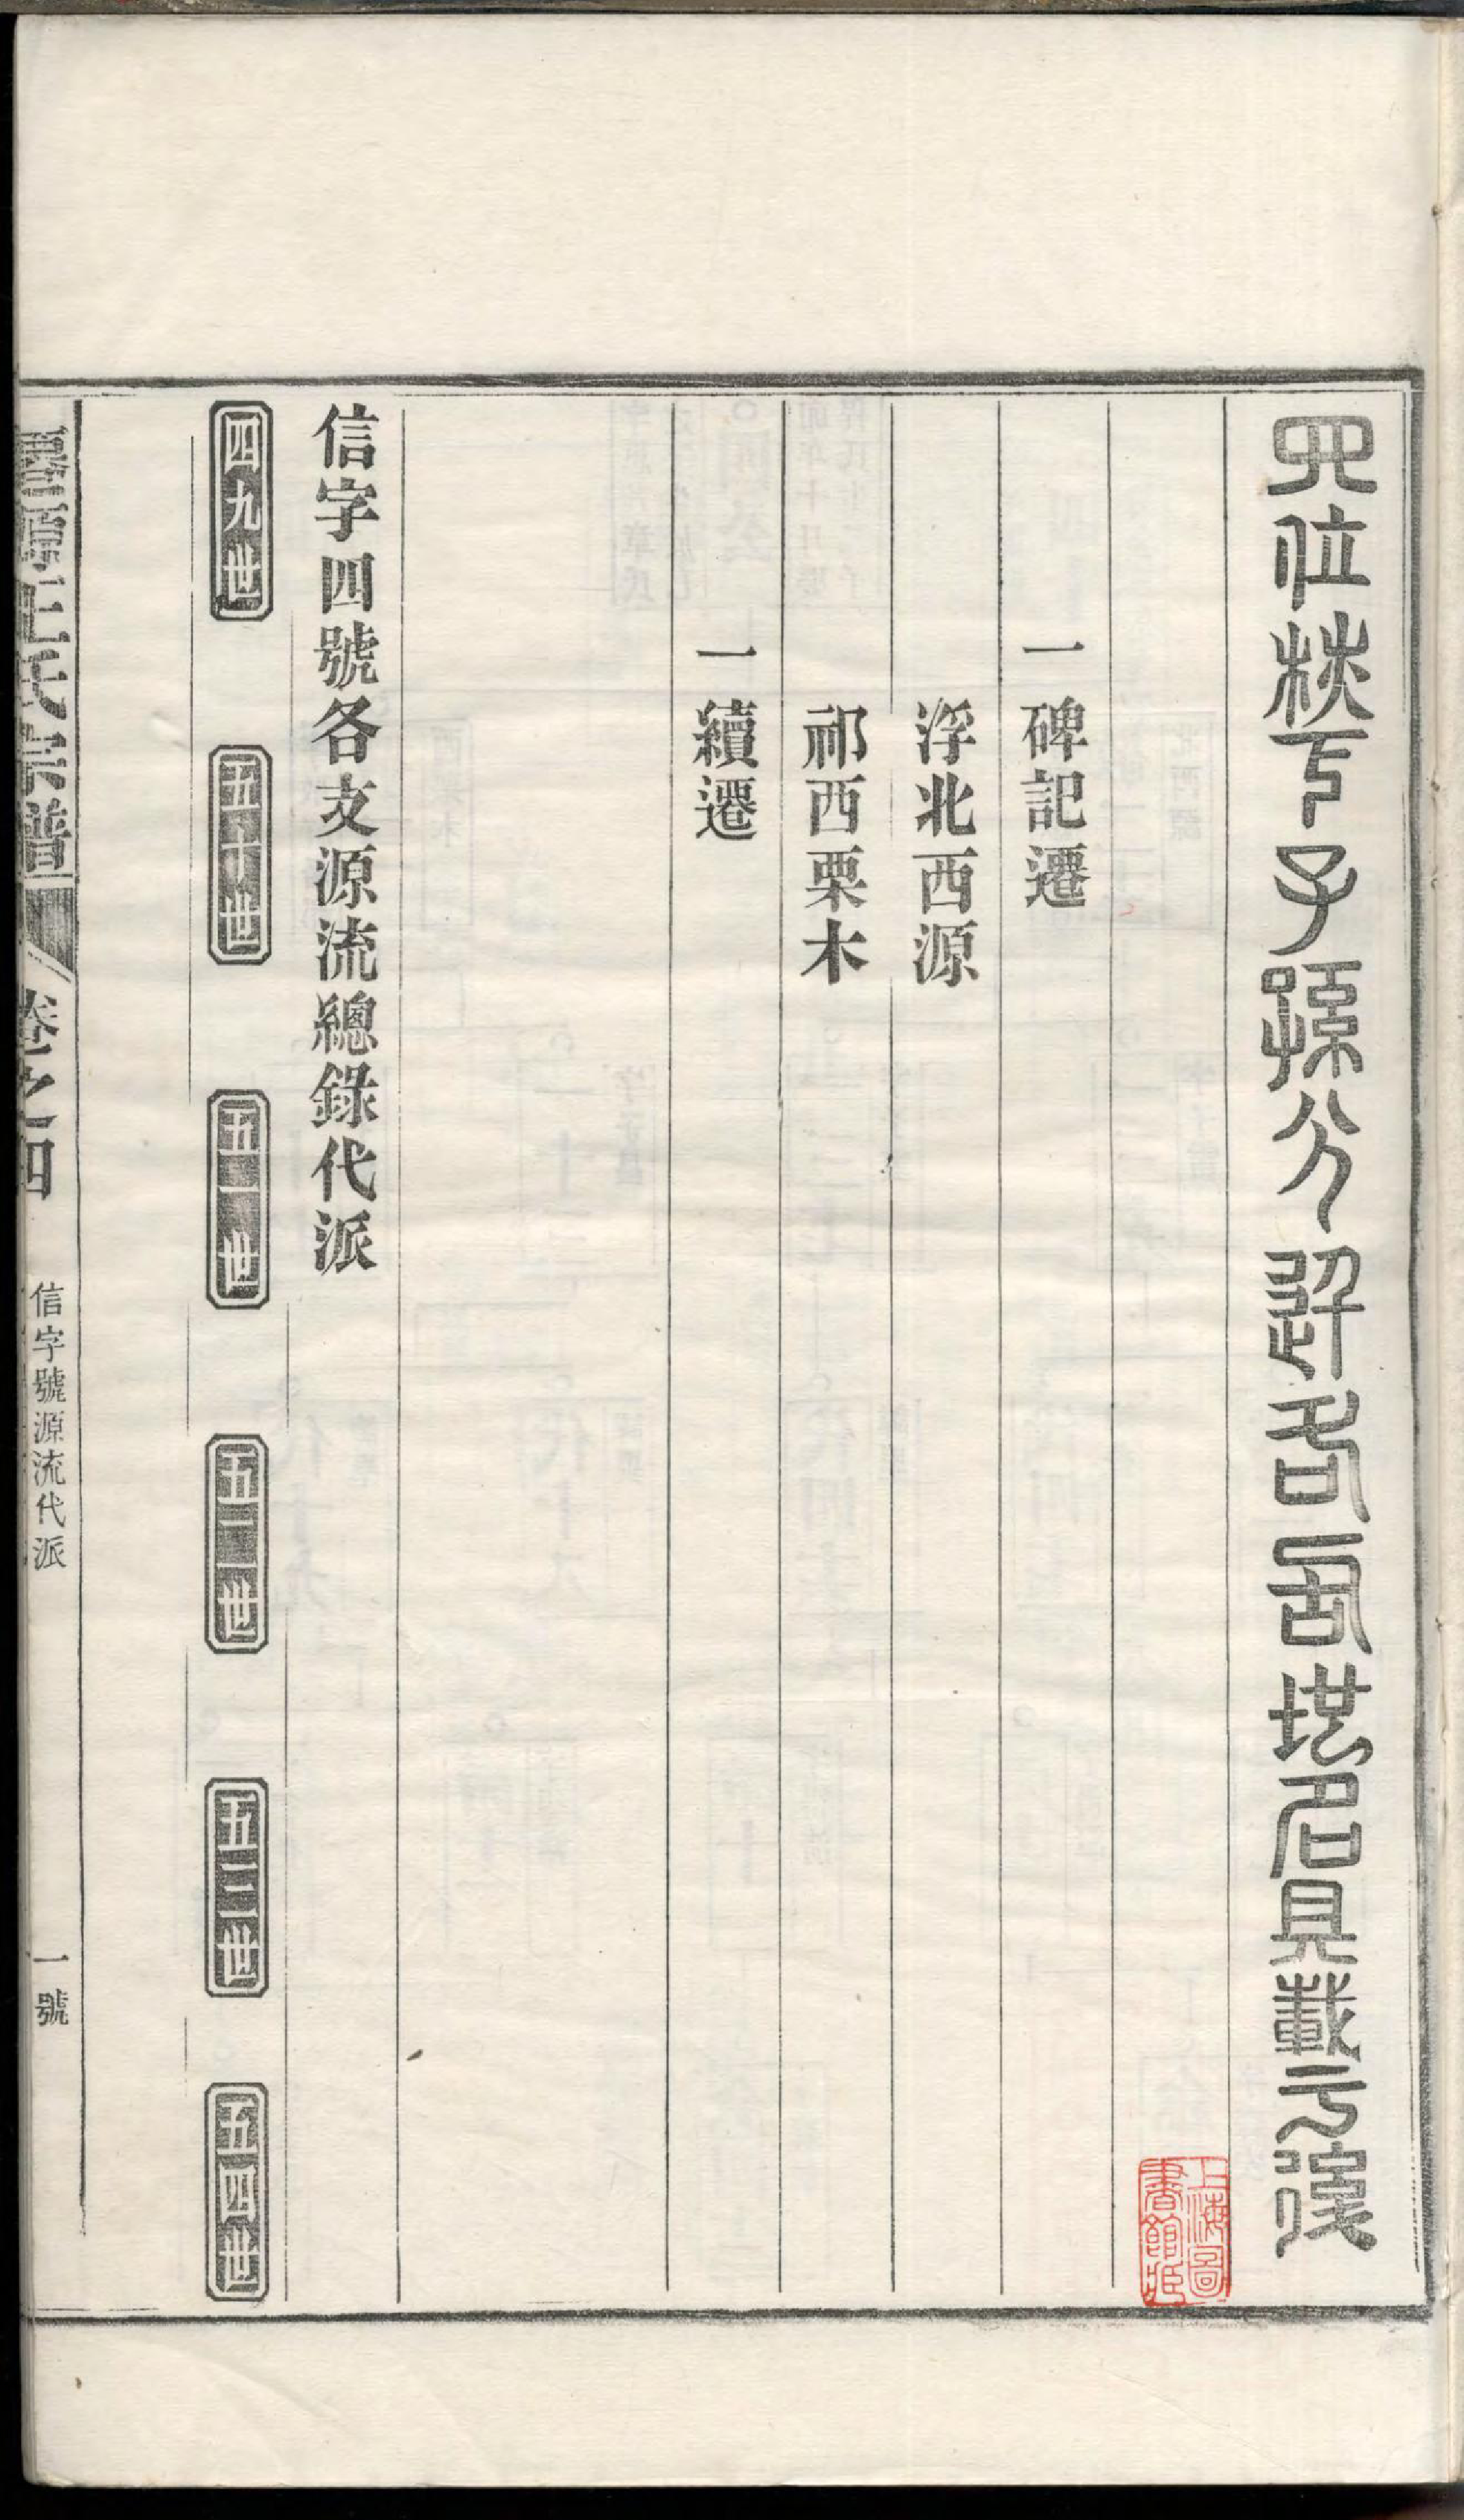 四位秩下子孫分遷各居地名具載于後
上海圖書館藏
一碑記遷
浮北西源
祁西栗木
一續遷
信字四號各支源流總錄代派
四九世
五十世
五一世
五二世
五三世
五四世
源王氏宗譜 卷之四 信字號源流代派 一號